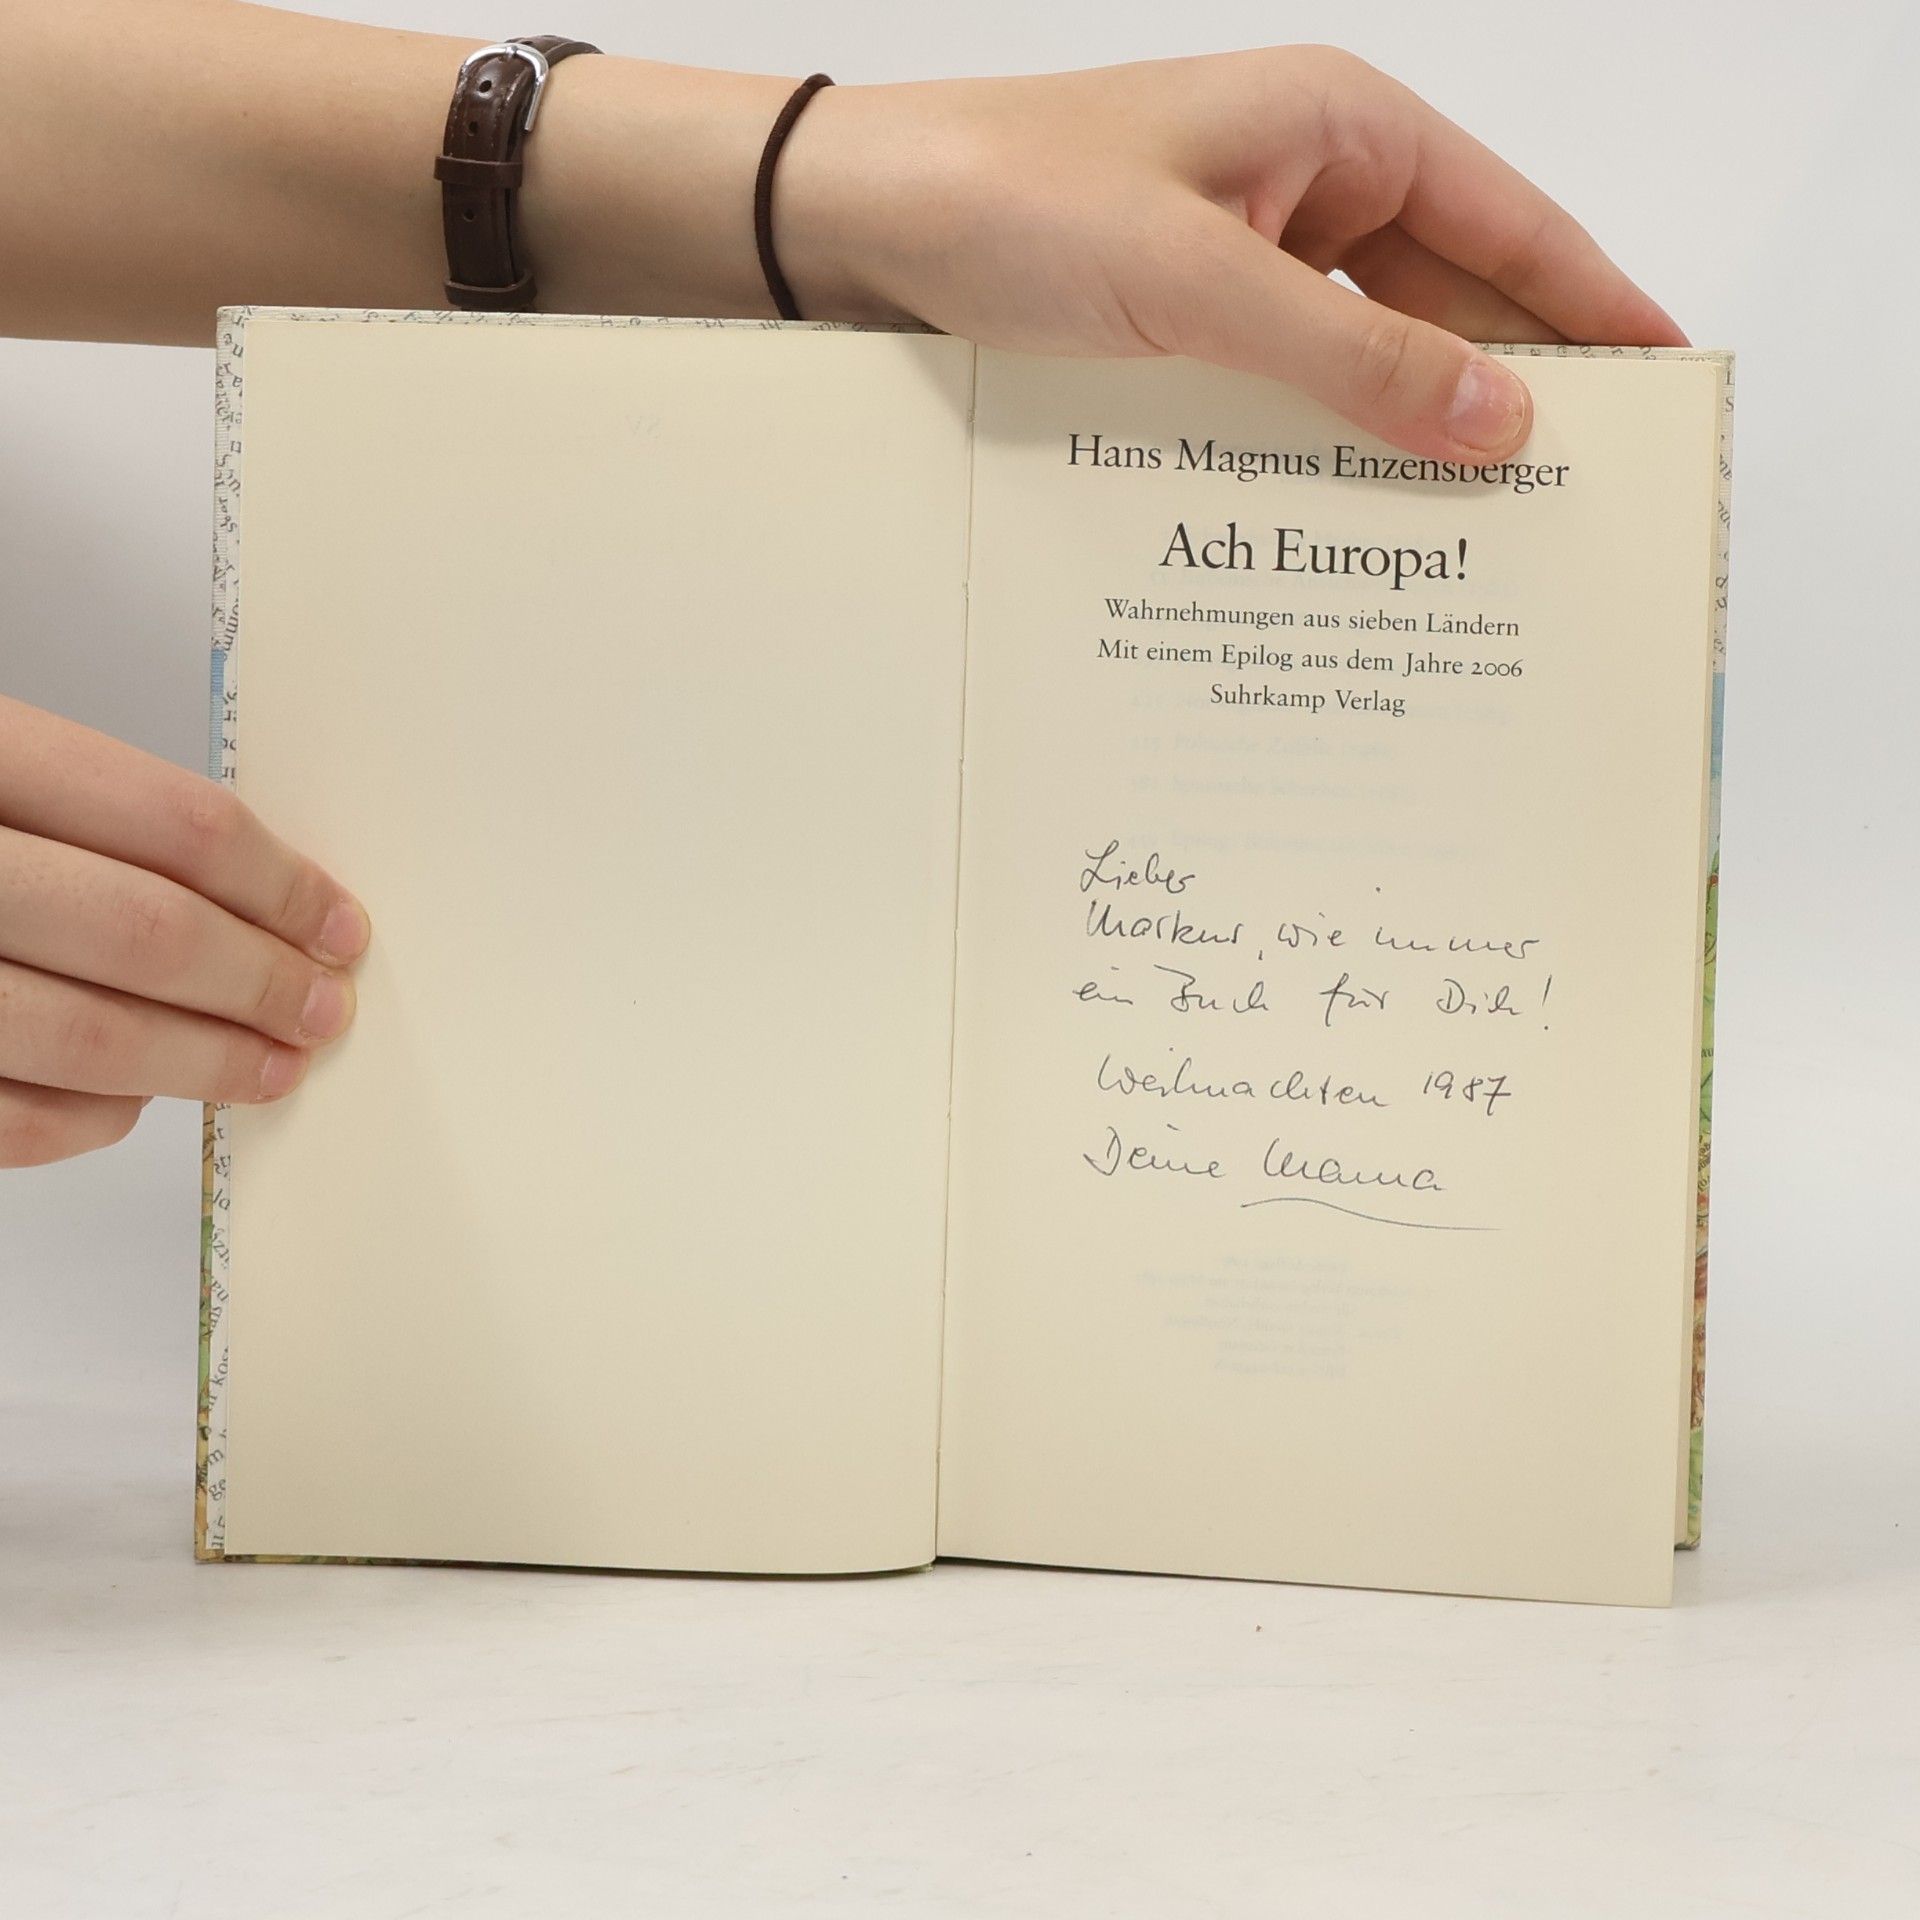 Hans Magnus Enzensberger
Ach Europa!
Wahrnehmungen aus sieben Ländern
Mit einem Epilog aus dem Jahre 2006
Suhrkamp Verlag
Lieber
Markus, wie immer
ein Buch für Dich!
Weihnachten 1987
Deine Mama